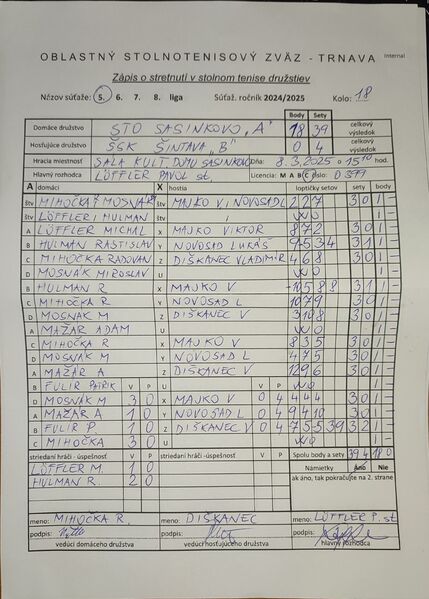 OBLASTNÝ STOLNOTENISOVÝ ZVÄZ - TRNAVA
Internal
Zápis o stretnutí v stolnom tenise družstiev
Názov súťaže: 5. 6. 7. 8. liga Súťaž. ročník 2024/2025 Kolo: 18
Body Sety
Domáce družstvo STO SASINKOVO „A" 18 39 celkový výsledok
Hosťujúce družstvo ŠSK ŠINTAVA „B" 0 4 celkový výsledok
Hracia miestnosť SÁLA KULT. DOMU SASINKOVO Dňa: 8.3.2025 o 15 10 hod.
Hlavný rozhodca LÖFFLER PAVOL st. Licencia: M A B C číslo: 0399
A domáci X hostia loptičky setov sety body
štv MIHOČKA MOSNÁK štv MAJKO V, NOVOSAD L 2 2 7 3 0 1 -
štv LÖFFLER, HULMAN štv WO 1 -
A LÖFFLER MICHAL X MAJKO VIKTOR 8 7 2 3 0 1 -
B HULMAN RASTISLAV Y NOVOSAD LUKÁŠ 9 -5 3 4 3 1 1 -
C MIHOČKA RADOVAN Z DIŠKANEC VLADIMÍR 4 6 8 3 0 1 -
D MOSNÁK MIROSLAV U WO 1 -
B HULMAN R X MAJKO V -10 5 8 8 3 1 1 -
C MIHOČKA R Y NOVOSAD L 10 7 9 3 0 1 -
D MOSNÁK M Z DIŠKANEC V 3 10 8 3 0 1 -
A MAŽÁR ADAM U WO 1 -
C MIHOČKA R X MAJKO V 8 3 5 3 0 1 -
D MOSNÁK M Y NOVOSAD L 4 7 5 3 0 1 -
A MAŽÁR A Z DIŠKANEC V 12 9 6 3 0 1 -
B FULIR PATRIK V P U V P WO 1 -
D MOSNÁK M 3 0 X MAJKO V 0 4 4 4 4 3 0 1 -
A MAŽÁR A 1 0 Y NOVOSAD L 0 4 9 4 10 3 0 1 -
B FULIR P 1 0 Z DIŠKANEC V 0 4 3 2 1 -
C MIHOČKA 3 0 U WO 1 -
striedaní hráči - úspešnosť V P striedaní hráči - úspešnosť V P Spolu body a sety 39 4 18 0
LÖFFLER M. 1 0 Námietky Áno Nie
HULMAN R. 2 0 ak áno, tak pokračujte na 2. strane
meno: MIHOČKA R. meno: DIŠKANEC meno: LÖFFLER P. st
podpis: podpis: podpis:
vedúci domáceho družstva vedúci hosťujúceho družstva hlavný rozhodca